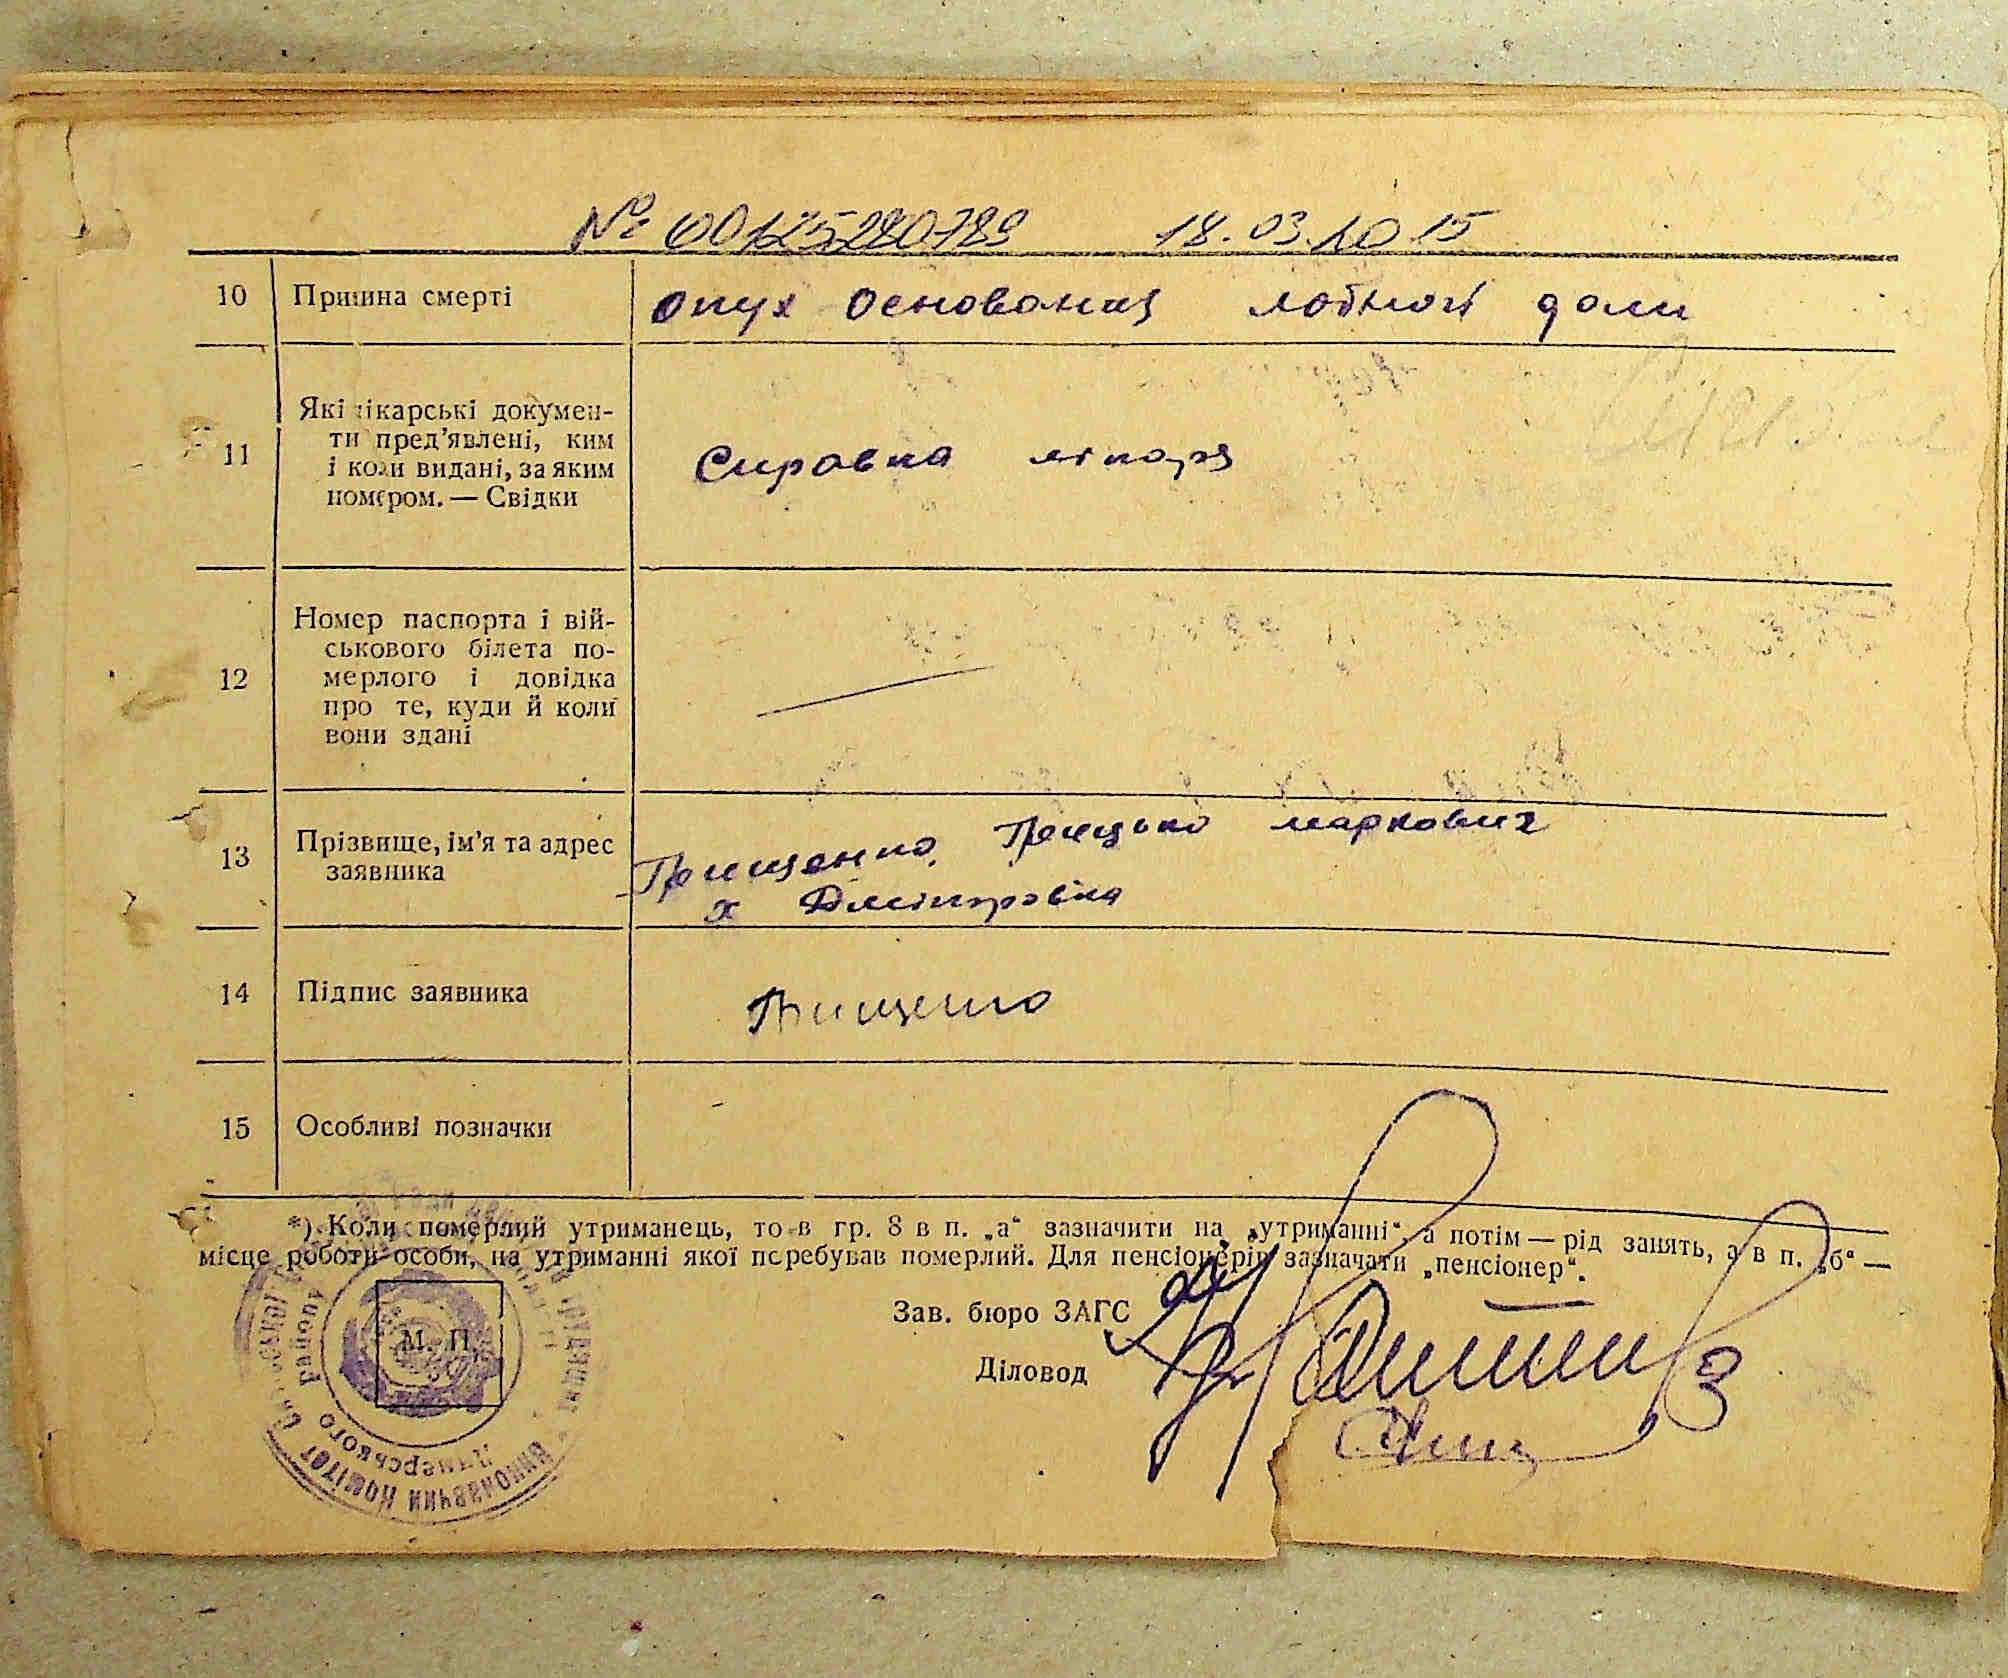 № 00125280789 18.03.2015
10 Причина смерті
опух основания лобной доли
11 Які лікарські докумен-
ти пред'явлені, ким
і коли видані, за яким
номером. — Свідки
Справка лікаря
12 Номер паспорта і вій-
ськового білета по-
мерлого і довідка
про те, куди й коли
вони здані
13 Прізвище, ім'я та адрес
заявника
Грищенко Грицько маркович
х Дмітровка
14 Підпис заявника
Грищенко
15 Особливі позначки
*) Коли померлий утриманець, то в гр. 8 в п. „а“ зазначити на „утриманні“, а потім — рід занять, а в п. „б“ —
місце роботи особи, на утриманні якої перебував померлий. Для пенсіонерів зазначати „пенсіонер“.
Зав. бюро ЗАГС
Діловод
М. П.
Виконавчий Комітет
Димерського району